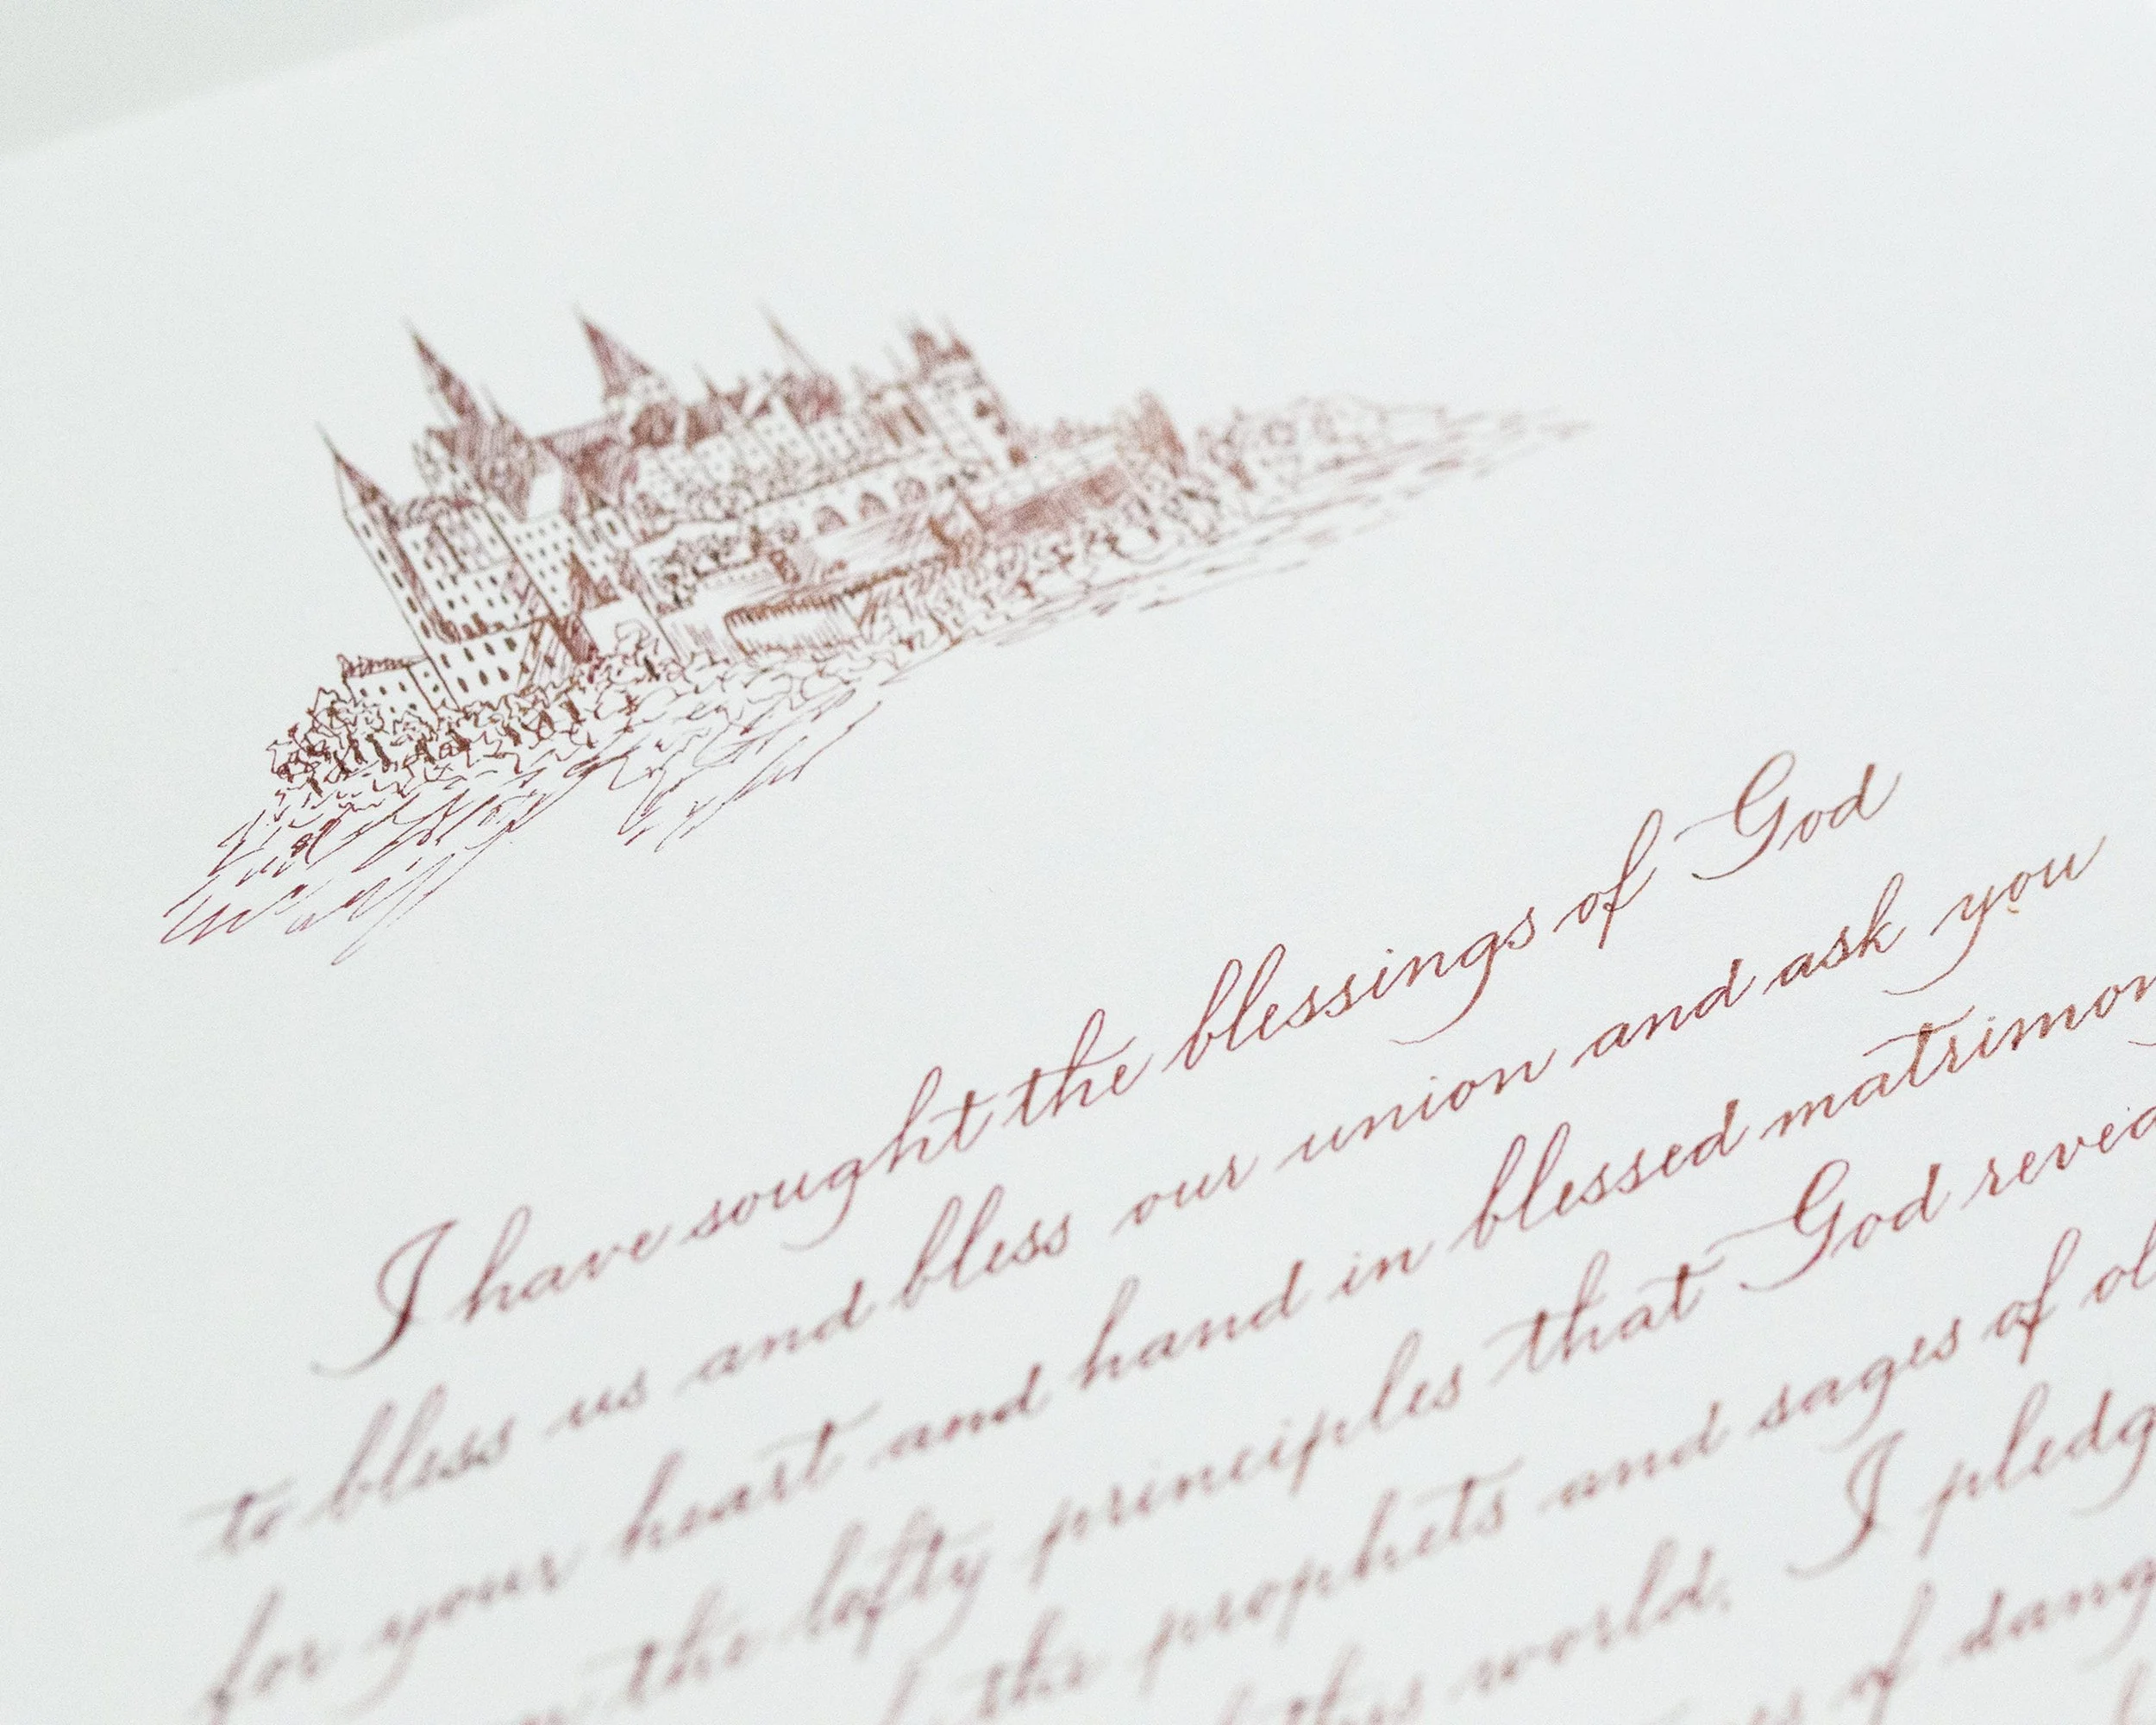 I have sought the blessings of God
to bless us and bless our union and ask you
for your heart and hand in blessed matrimon
the lofty principles that God
the prophets and sages of
this world. I pledg
of dang